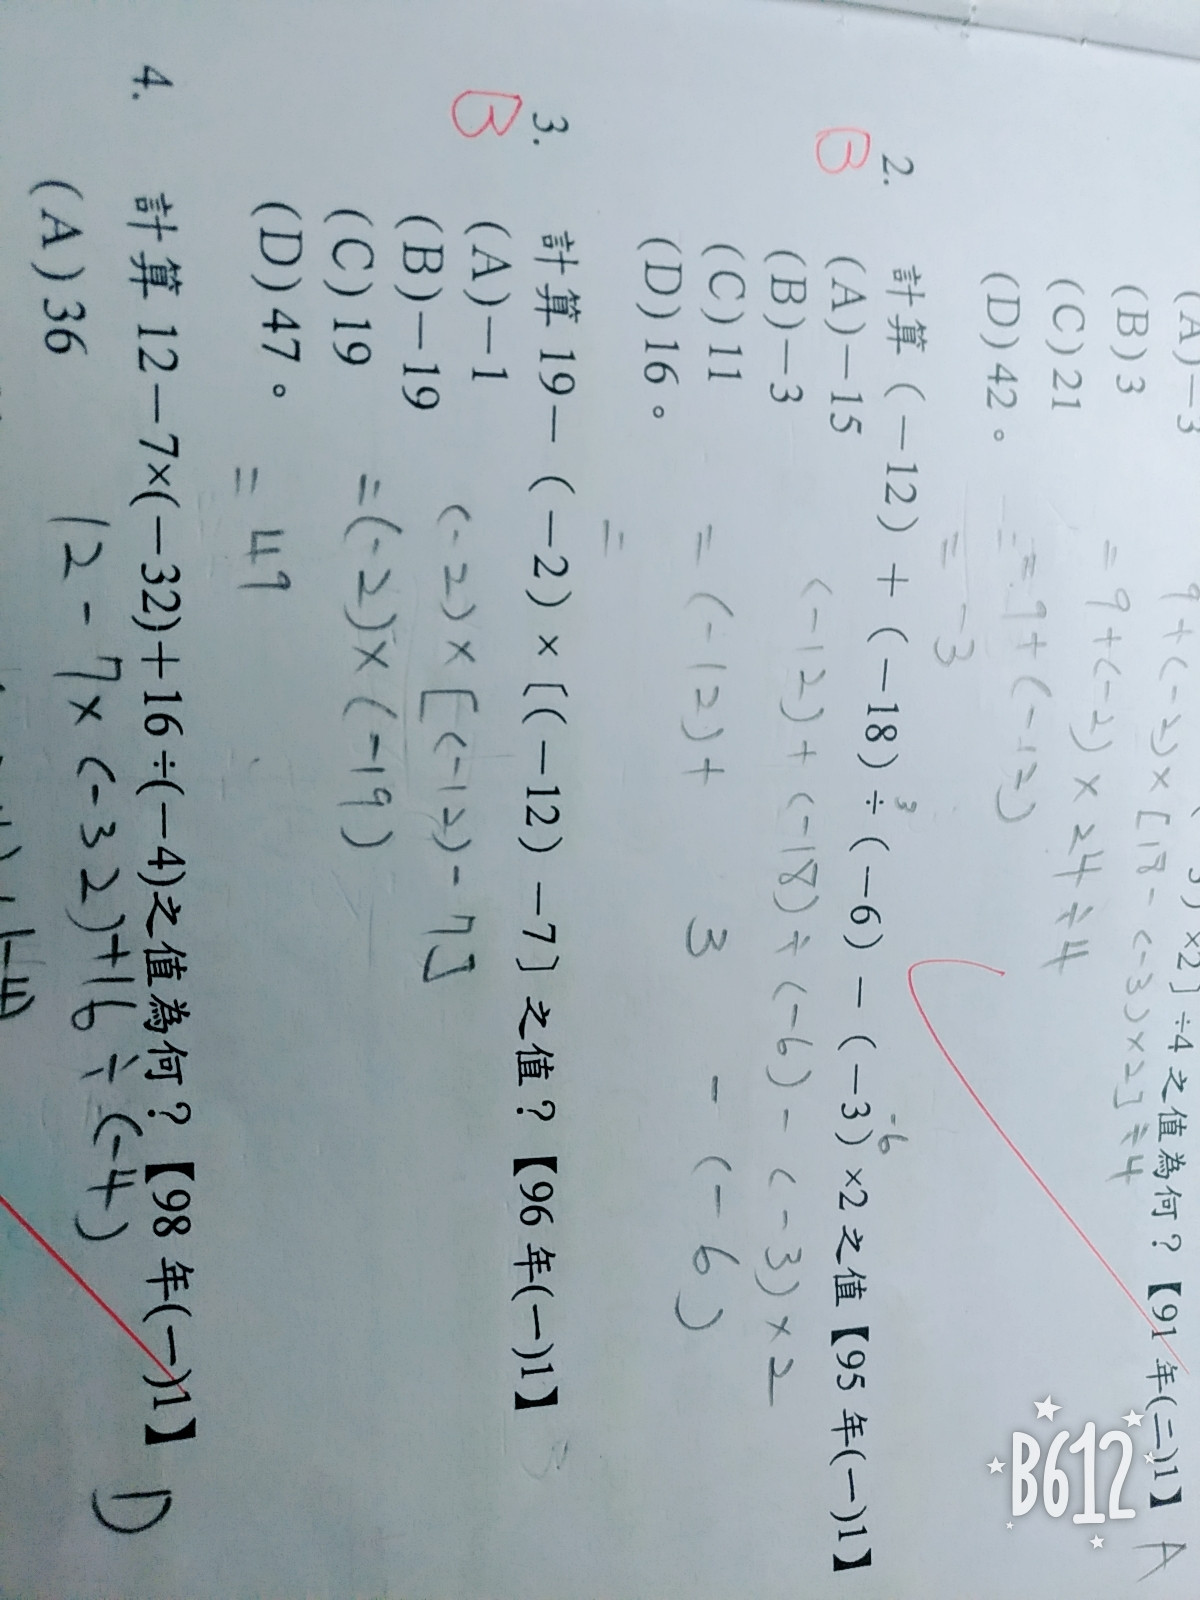 (A)－3
(B)3
(C)21
(D)42。
×2〕÷4 之值為何？【91 年(二)1】 A
9+(-2)×[18-(-3)×2]÷4
=9+(-2)×24÷4
=9+(-12)
=-3
2. 計算（－12）＋（－18）÷（－6）－（－3）×2 之值【95 年(一)1】
B
3
-6
(A)－15
(B)－3
(C)11
(D)16。
(-12)+(-18)÷(-6)-(-3)×2
=(-12)+ 3 -(-6)
=
3. 計算 19－（－2）×〔（－12）－7〕之值？【96 年(一)1】
B
(A)－1
(B)－19
(C)19
(D)47。
(-2)×[(-12)-7]
=(-2)×(-19)
=49
4. 計算 12－7×(－32)＋16÷(－4)之值為何？【98 年(一)1】 D
(A)36
12-7×(-32)+16÷(-4)
B612